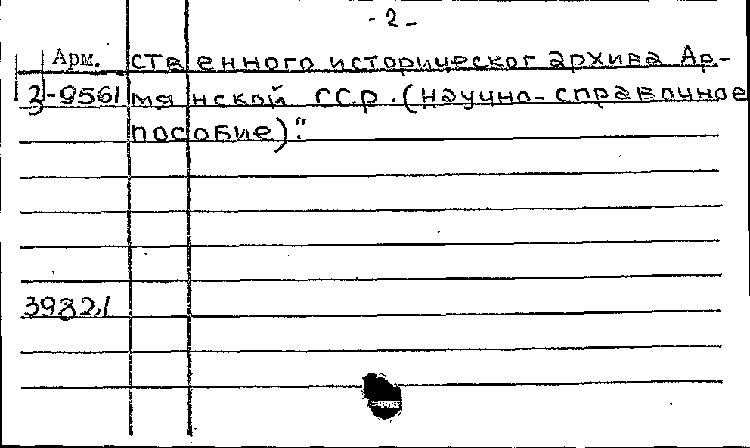 -2-
Арм. ственного историческог архива Ар-
3-9561 мянской ССР. (научно-справочное
пособие)."
39821